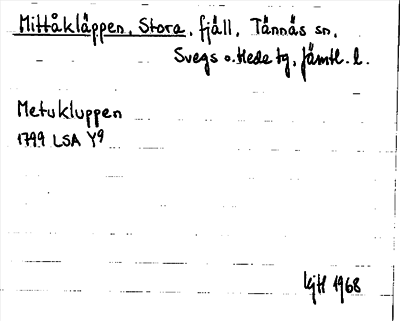 Mittåkläppen, Stora, fjäll, Tännäs sn,
Svegs o. Hede tg, Jämtl. l.
Metukluppen
1799 LSA Y9
1968